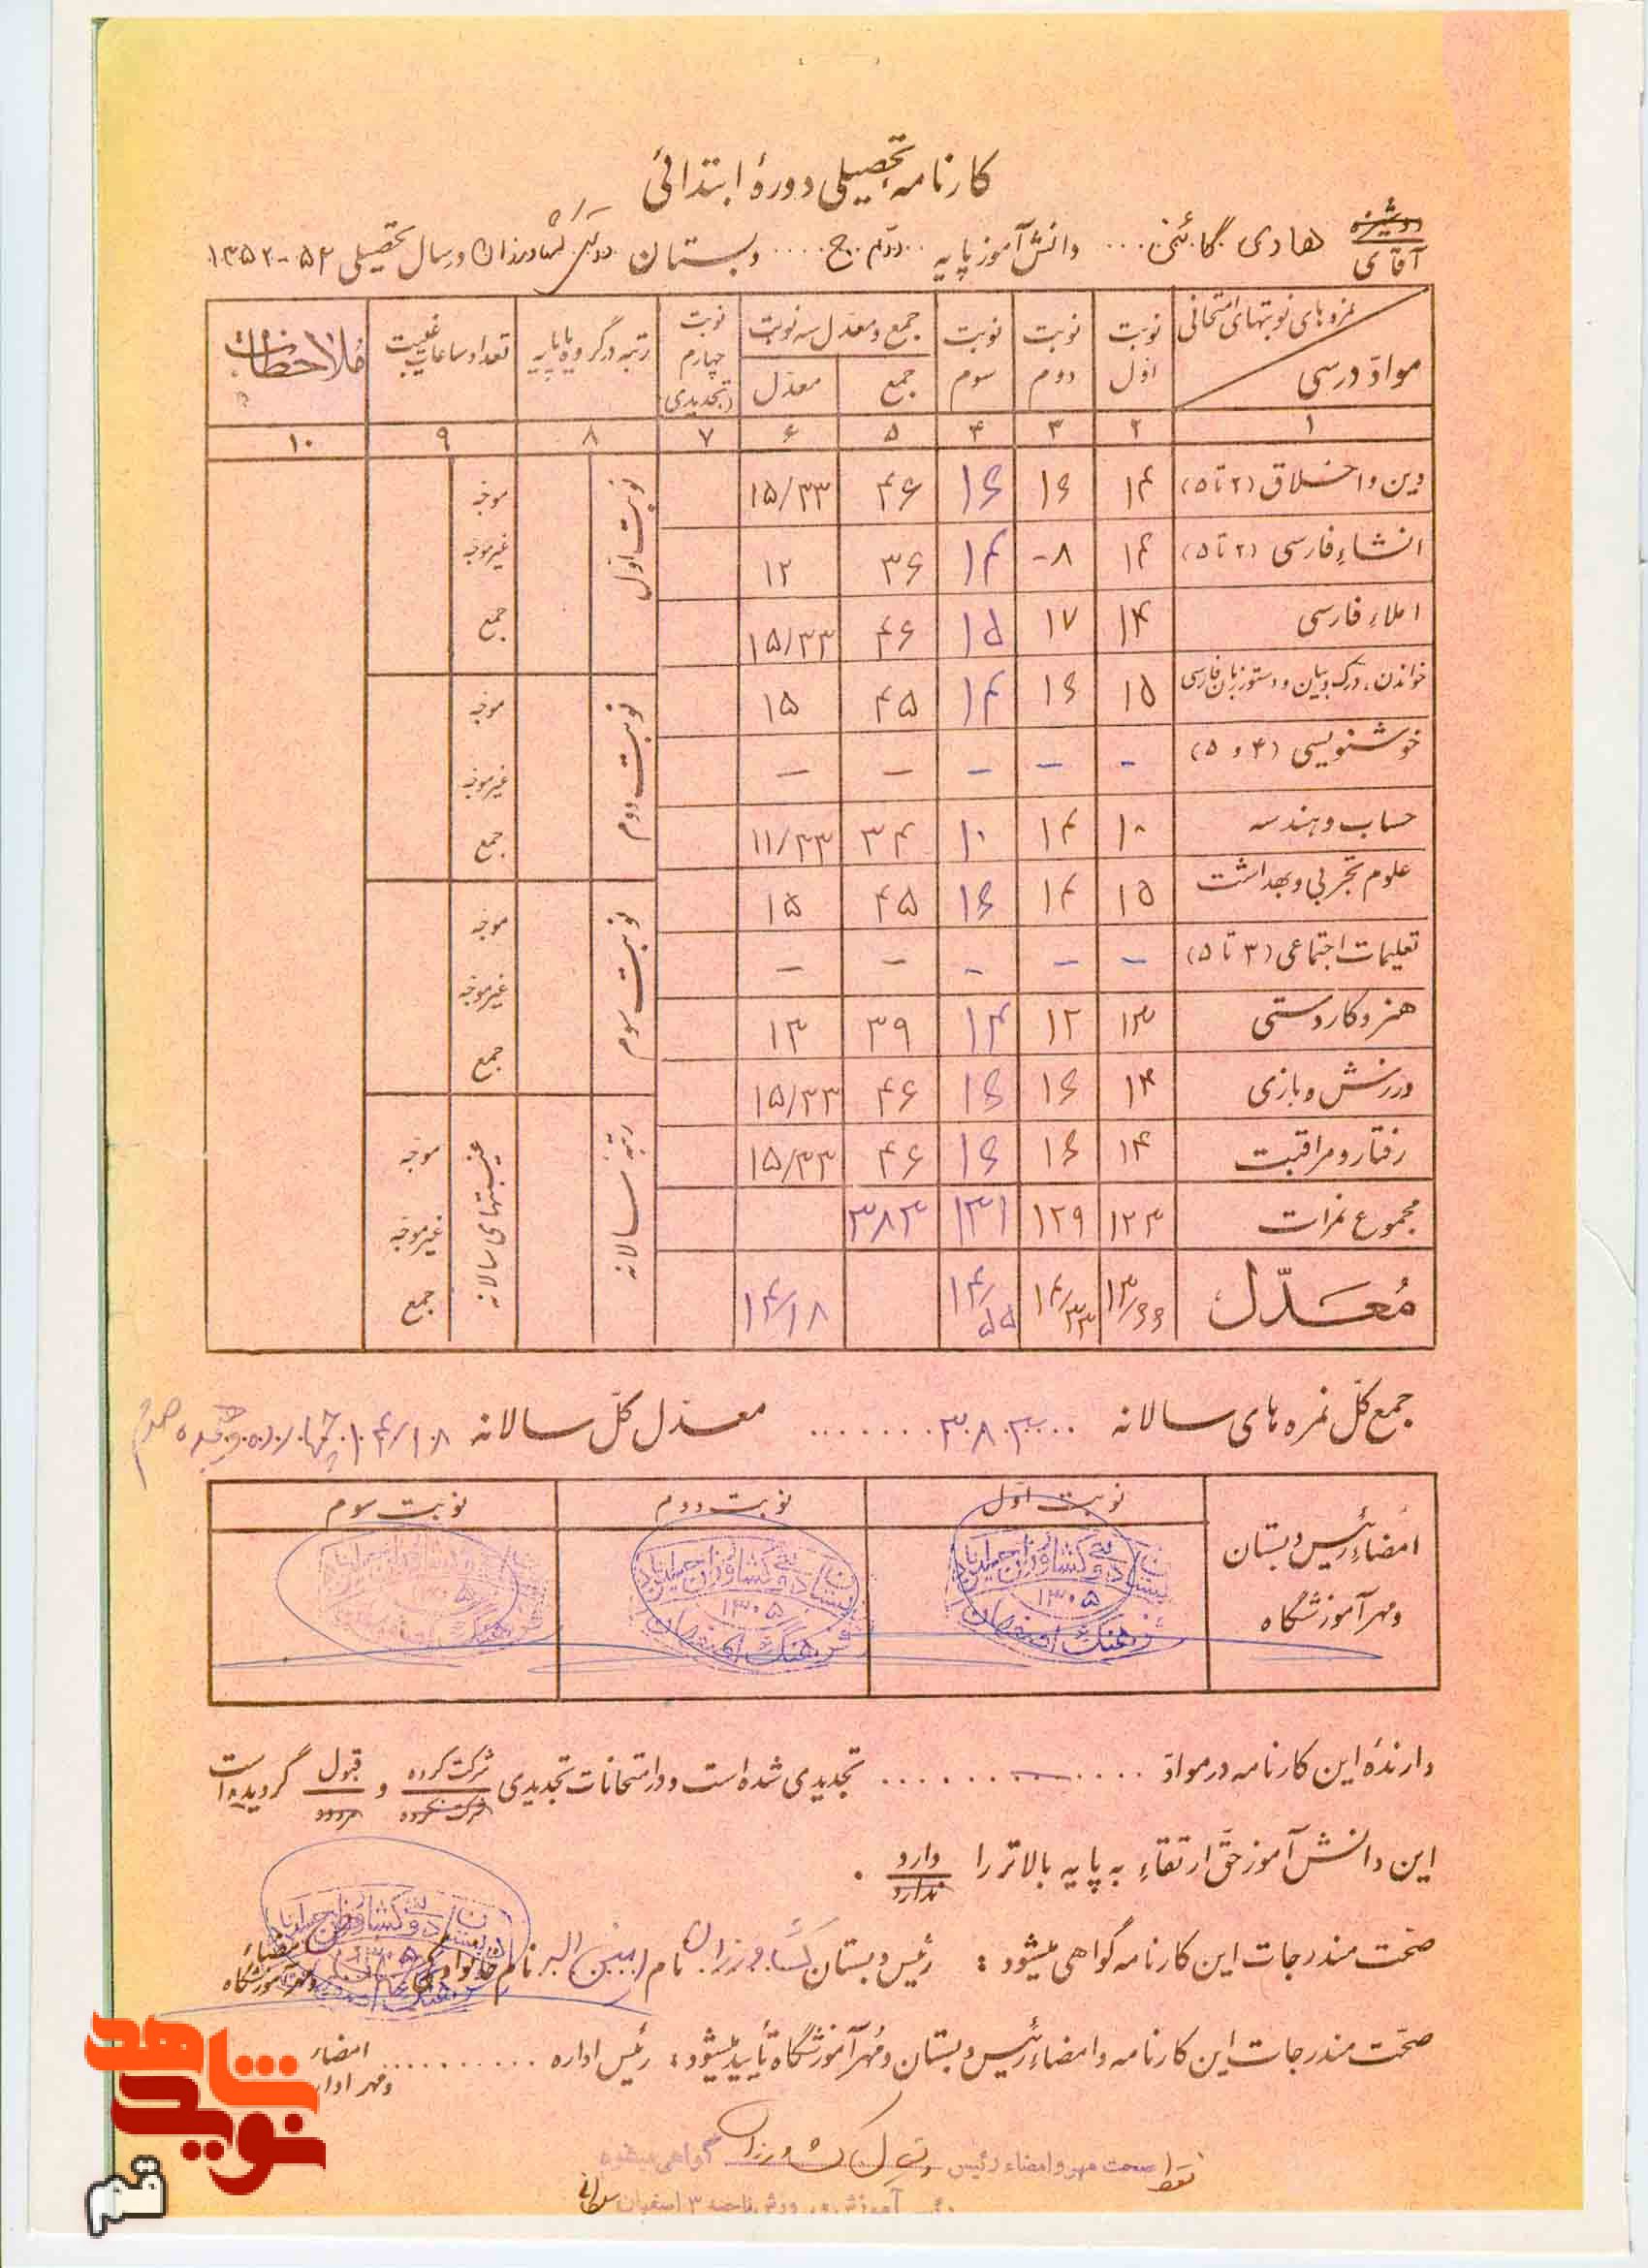 کارنامه تحصیلی دورهٔ ابتدائی
دوشیزه
آقای هادی دانش آموز پایه دوم ج دبستان دولتی کشاورزان در سال تحصیلی ۵۳-۱۳۵۲
نمره های نوبتهای امتحانی
مواد درسی
نوبت اول
نوبت دوم
نوبت سوم
جمع و معدل سه نوبت
جمع
معدل
نوبت چهارم (تجدیدی)
رتبه در گروه یا پایه
تعداد ساعات غیبت
ملاحظات
۱ ۲ ۳ ۴ ۵ ۶ ۷ ۸ ۹ ۱۰
دین و اخلاق (۲ تا ۵) ۱۴ ۱۶ ۱۶ ۴۶ ۱۵/۳۳
انشاء فارسی (۲ تا ۵) ۱۴ ۸- ۱۴ ۳۶ ۱۲
املاء فارسی ۱۴ ۱۷ ۱۵ ۴۶ ۱۵/۳۳
خواندن، درک و بیان و دستور زبان فارسی ۱۵ ۱۶ ۱۴ ۴۵ ۱۵
خوشنویسی (۴ و ۵) - - - - -
حساب و هندسه ۱۰ ۱۴ ۱۰ ۳۴ ۱۱/۳۳
علوم تجربی و بهداشت ۱۵ ۱۴ ۱۶ ۴۵ ۱۵
تعلیمات اجتماعی (۳ تا ۵) - - - - -
هنر و کاردستی ۱۳ ۱۲ ۱۴ ۳۹ ۱۳
ورزش و بازی ۱۴ ۱۶ ۱۶ ۴۶ ۱۵/۳۳
رفتار و مراقبت ۱۴ ۱۶ ۱۶ ۴۶ ۱۵/۳۳
مجموع نمرات ۱۲۳ ۱۲۹ ۱۳۱ ۳۸۳
معدّل ۱۳/۶۶ ۱۴/۳۳ ۱۴/۵۵ ۱۴/۱۸
نوبت اول
موجه
غیرموجه
جمع
نوبت دوم
موجه
غیرموجه
جمع
نوبت سوم
موجه
غیرموجه
جمع
رتبه سالانه
غیبتهای سالانه
موجه
غیرموجه
جمع
جمع کل نمره های سالانه ۳۸۳ معدل کل سالانه ۱۴/۱۸ چهارده و هیجده صدم
امضاء رئیس دبستان
و مهر آموزشگاه
نوبت اول
نوبت دوم
نوبت سوم
۱۳۰۵
فرهنگ اصفهان
۱۳۰۵
فرهنگ اصفهان
۱۳۰۵
فرهنگ اصفهان
دارندهٔ این کارنامه در مواد تجدیدی شده است و در امتحانات تجدیدی شرکت کرده شرکت نکرده و قبول مردود گردیده است
این دانش آموز حق ارتقاء به پایه بالاتر را دارد ندارد .
صحت مندرجات این کارنامه گواهی میشود : رئیس دبستان کشاورزان نام نام خانوادگی امضاء و مهر آموزشگاه
صحت مندرجات این کارنامه و امضاء رئیس دبستان و مهر آموزشگاه تأیید میشود : رئیس اداره امضاء و مهر اداره
فقط صحت مهر و امضاء رئیس دبستان کشاورزان گواهی میشود
آموزش و پرورش ناحیه ۳ اصفهان
نوید شاهد
قم